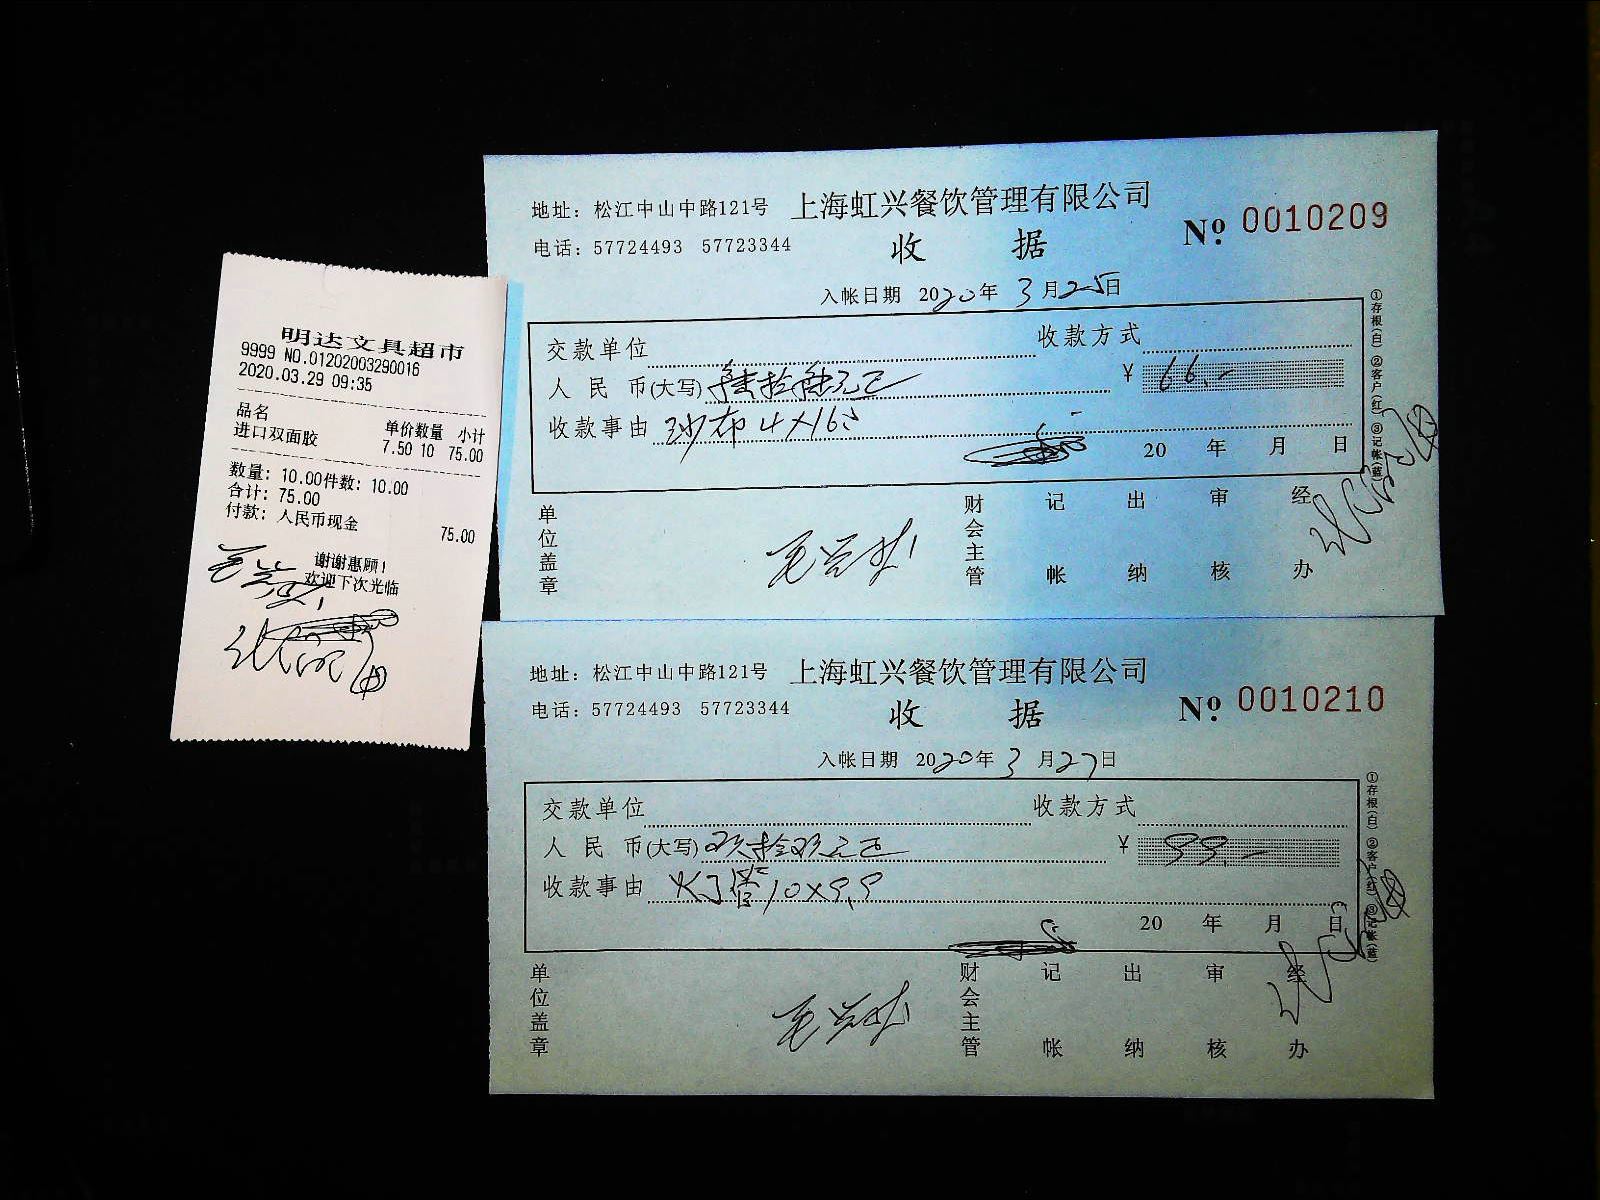 明达文具超市
9999 NO.01202003290016
2020.03.29 09:35
品名 单价数量 小计
进口双面胶 7.50 10 75.00
数量: 10.00件数: 10.00
合计: 75.00
付款: 人民币现金 75.00
谢谢惠顾!
欢迎下次光临
地址: 松江中山中路121号 上海虹兴餐饮管理有限公司
电话: 57724493 57723344 收据 Nº: 0010209
入帐日期 2020年3月25日
交款单位 收款方式
人民币(大写) 陆拾陆元正 ¥ 66.-
收款事由 砂布4×16.5
20 年 月 日
单位盖章 财会主管 记帐 出纳 审核 经办
①存根(白) ②客户(红) ③记帐(蓝)
地址: 松江中山中路121号 上海虹兴餐饮管理有限公司
电话: 57724493 57723344 收据 Nº: 0010210
入帐日期 2020年3月27日
交款单位 收款方式
人民币(大写) 玖拾玖元正 ¥ 99.-
收款事由 灯管10×9.9
20 年 月 日
单位盖章 财会主管 记帐 出纳 审核 经办
①存根(白) ②客户(红) ③记帐(蓝)